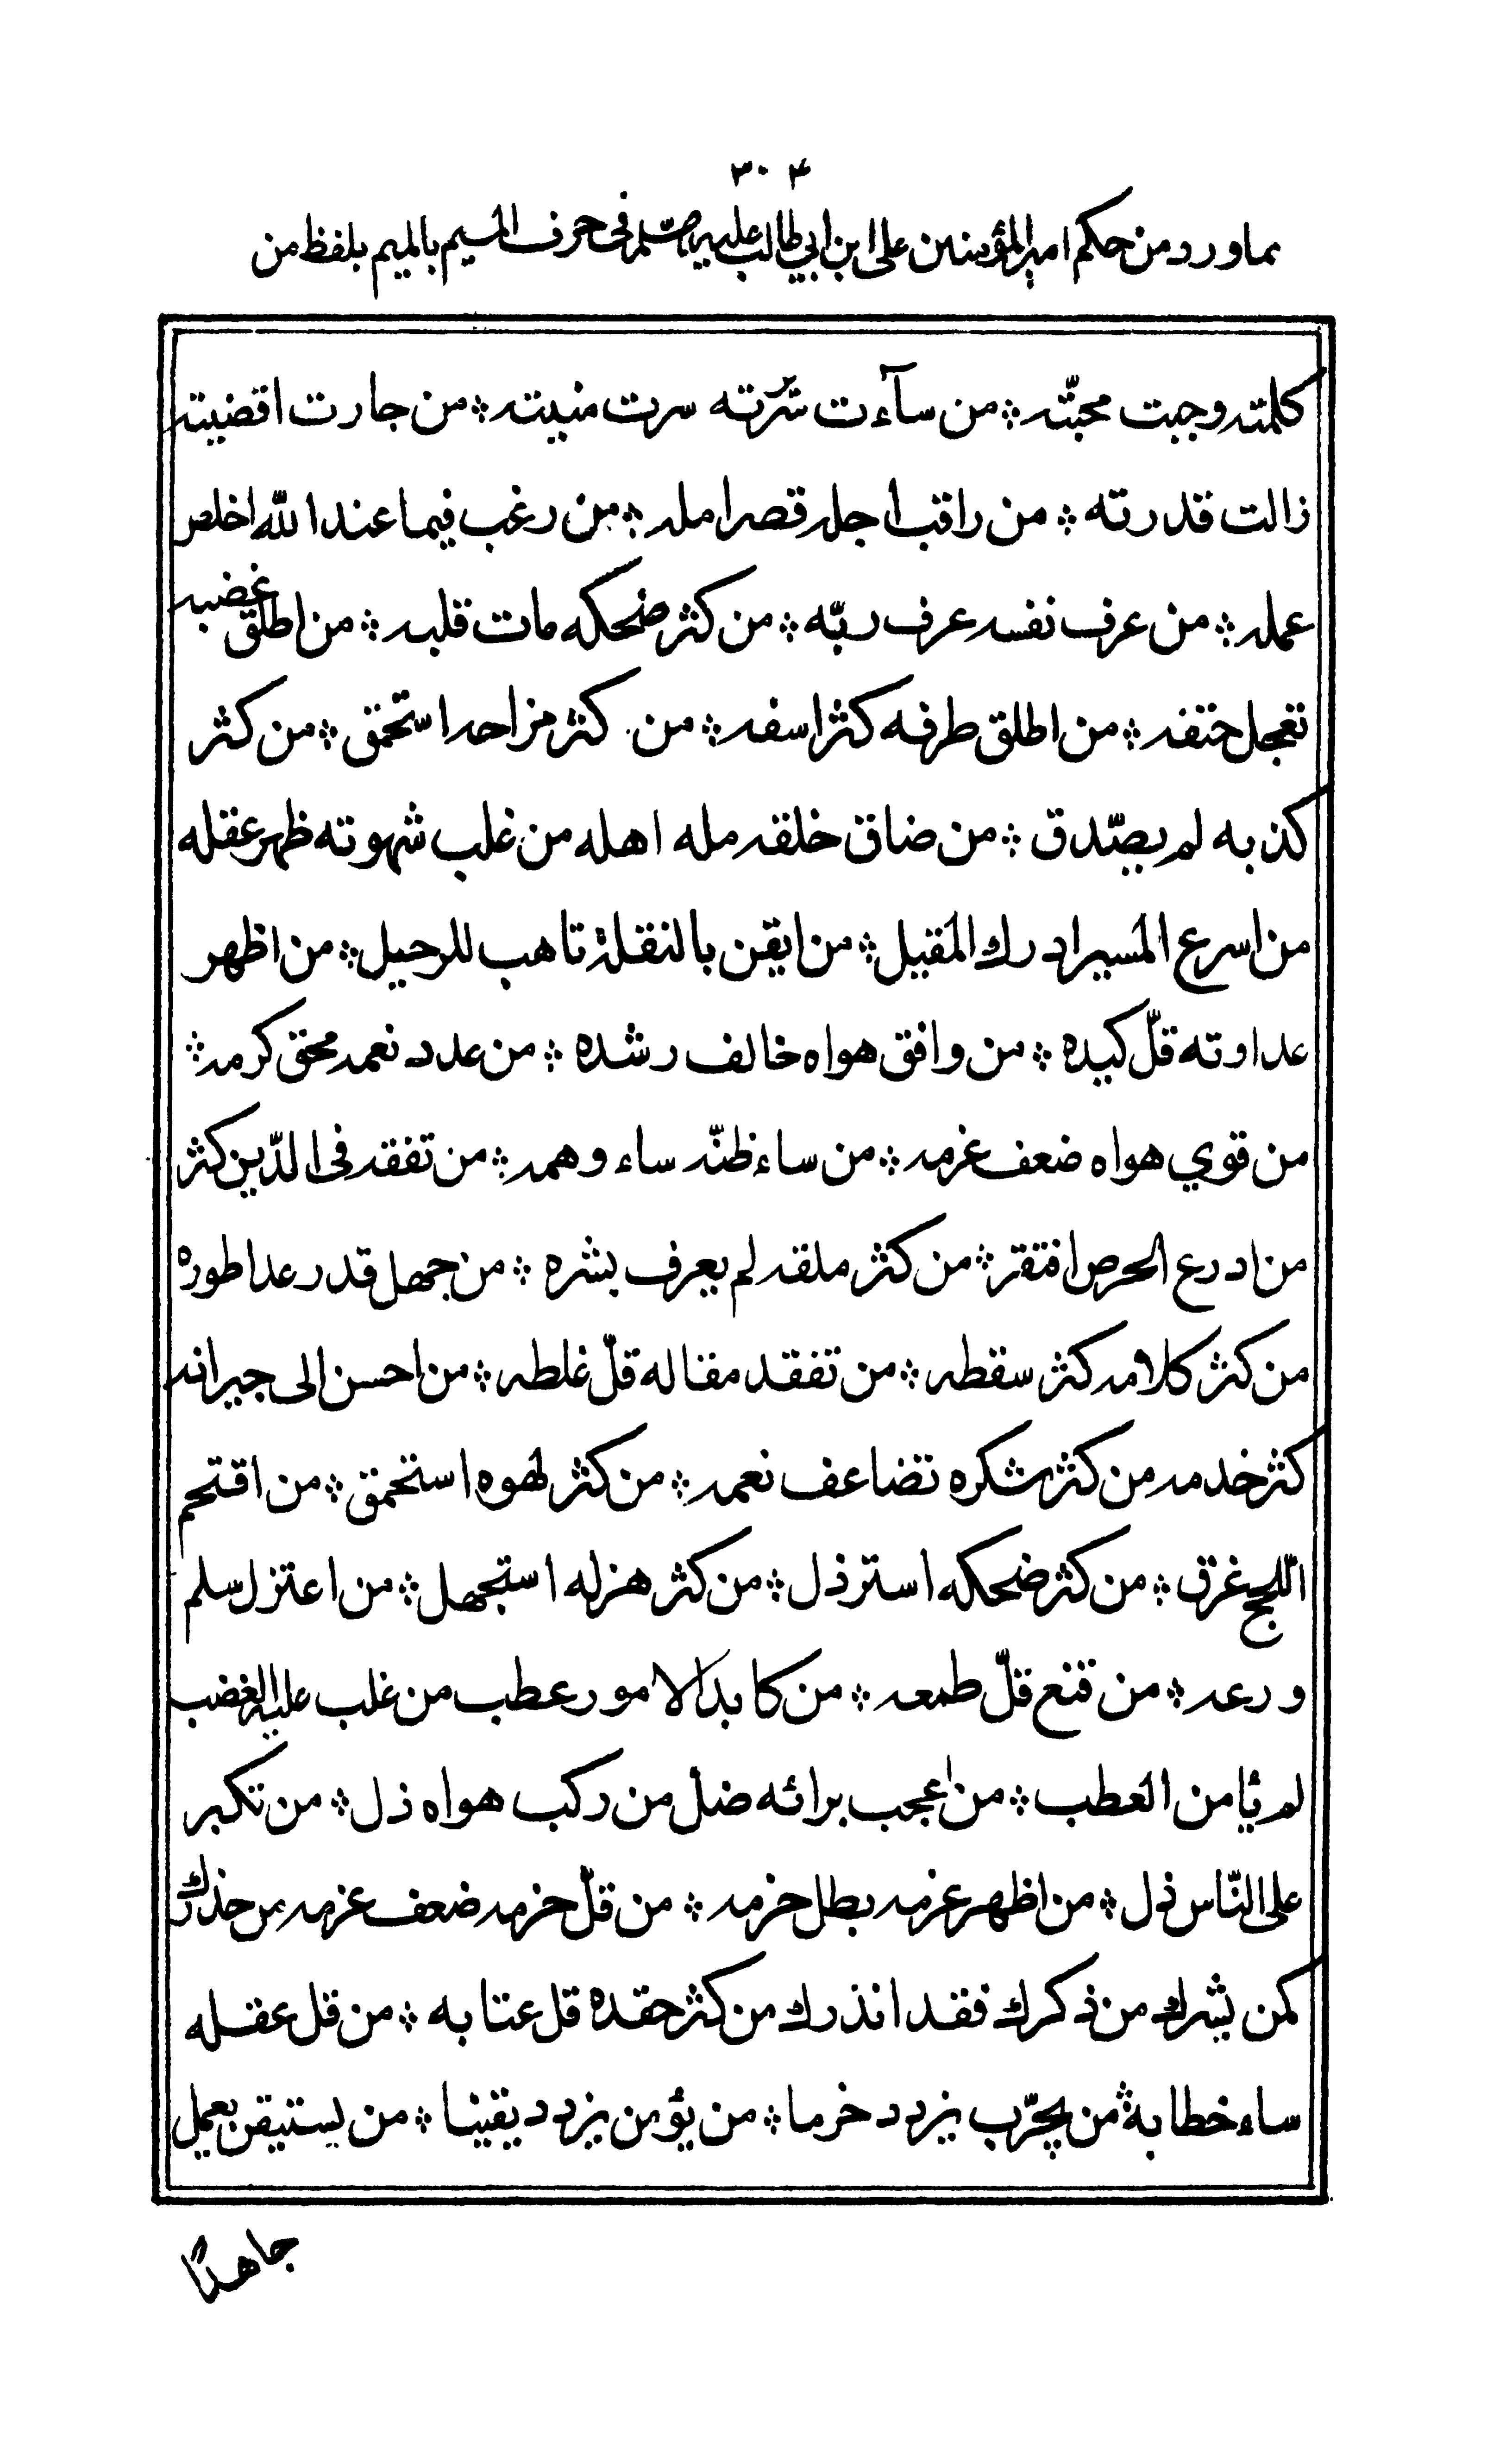 ٣٠٤
مما ورد من حكم امير المؤمنين على ابن ابي طالب عليه السلام فى حرف الميم بالميم بلفظ من
كلمته وجبت محبّته ※ من سآءت سّرته سرت منيته ※ من جارت اقضيته
زالت قدرته ※ من راقب اجله قصر امله ※ من رغب فيما عند اللّه اخلص
عمله ※ من عرف نفسه عرف ربّه ※ من كثر ضحكه مات قلبه ※ من اطلق غضبه
تعجل حتفه ※ من اطلق طرفه كثر اسفه ※ من كثر مزاحه استحمق ※ من كثر
كذبه لم يصّدق ※ من ضاق خلقه مله اهله من غلب شهوته ظهر عقله
من اسرع المسير ادرك المقيل ※ من ايقن بالنقلة تاهب للرحيل ※ من اظهر
عداوته قلّ كيده ※ من وافق هواه خالف رشده ※ من عدد نعمه محق كرمه ※
من قوي هواه ضعف عزمه ※ من ساء ظنّه ساء وهمه ※ من تفقه فى الدّين كثر
من ادرع الحرص افتقر ※ من كثر ملقه لم يعرف بشره ※ من جهل قدره عدا طوره
من كثر كلامه كثر سقطه ※ من تفقد مقاله قلّ غلطه ※ من احسن الى جيرانه
كثر خدمه من كثر شكره تضاعف نعمه ※ من كثر لهوه استحمق ※ من اقتحم
اللّجج غرق ※ من كثر ضحكه استرذل ※ من كثر هزله استجهل ※ من اعتزل سلم
ورعه ※ من قنع قلّ طمعه ※ من كابد الامور عطب من غلب عليه الغضب
لم يأمن العطب ※ من اعجب برائه ضل من ركب هواه ذل ※ من تكبر
على النّاس ذل ※ من اظهر عزمه بطل حزمه ※ من قلّ حزمه ضعف عزمه من حذرك
كمن بشرك من ذكرك فقد انذرك من كثر حقده قل عتابه ※ من قل عقله
ساء خطابه ※ من يجرّب يزدد حزما ※ من يؤمن يزدد يقينا ※ من يستيقن يعمل
جاهدًا